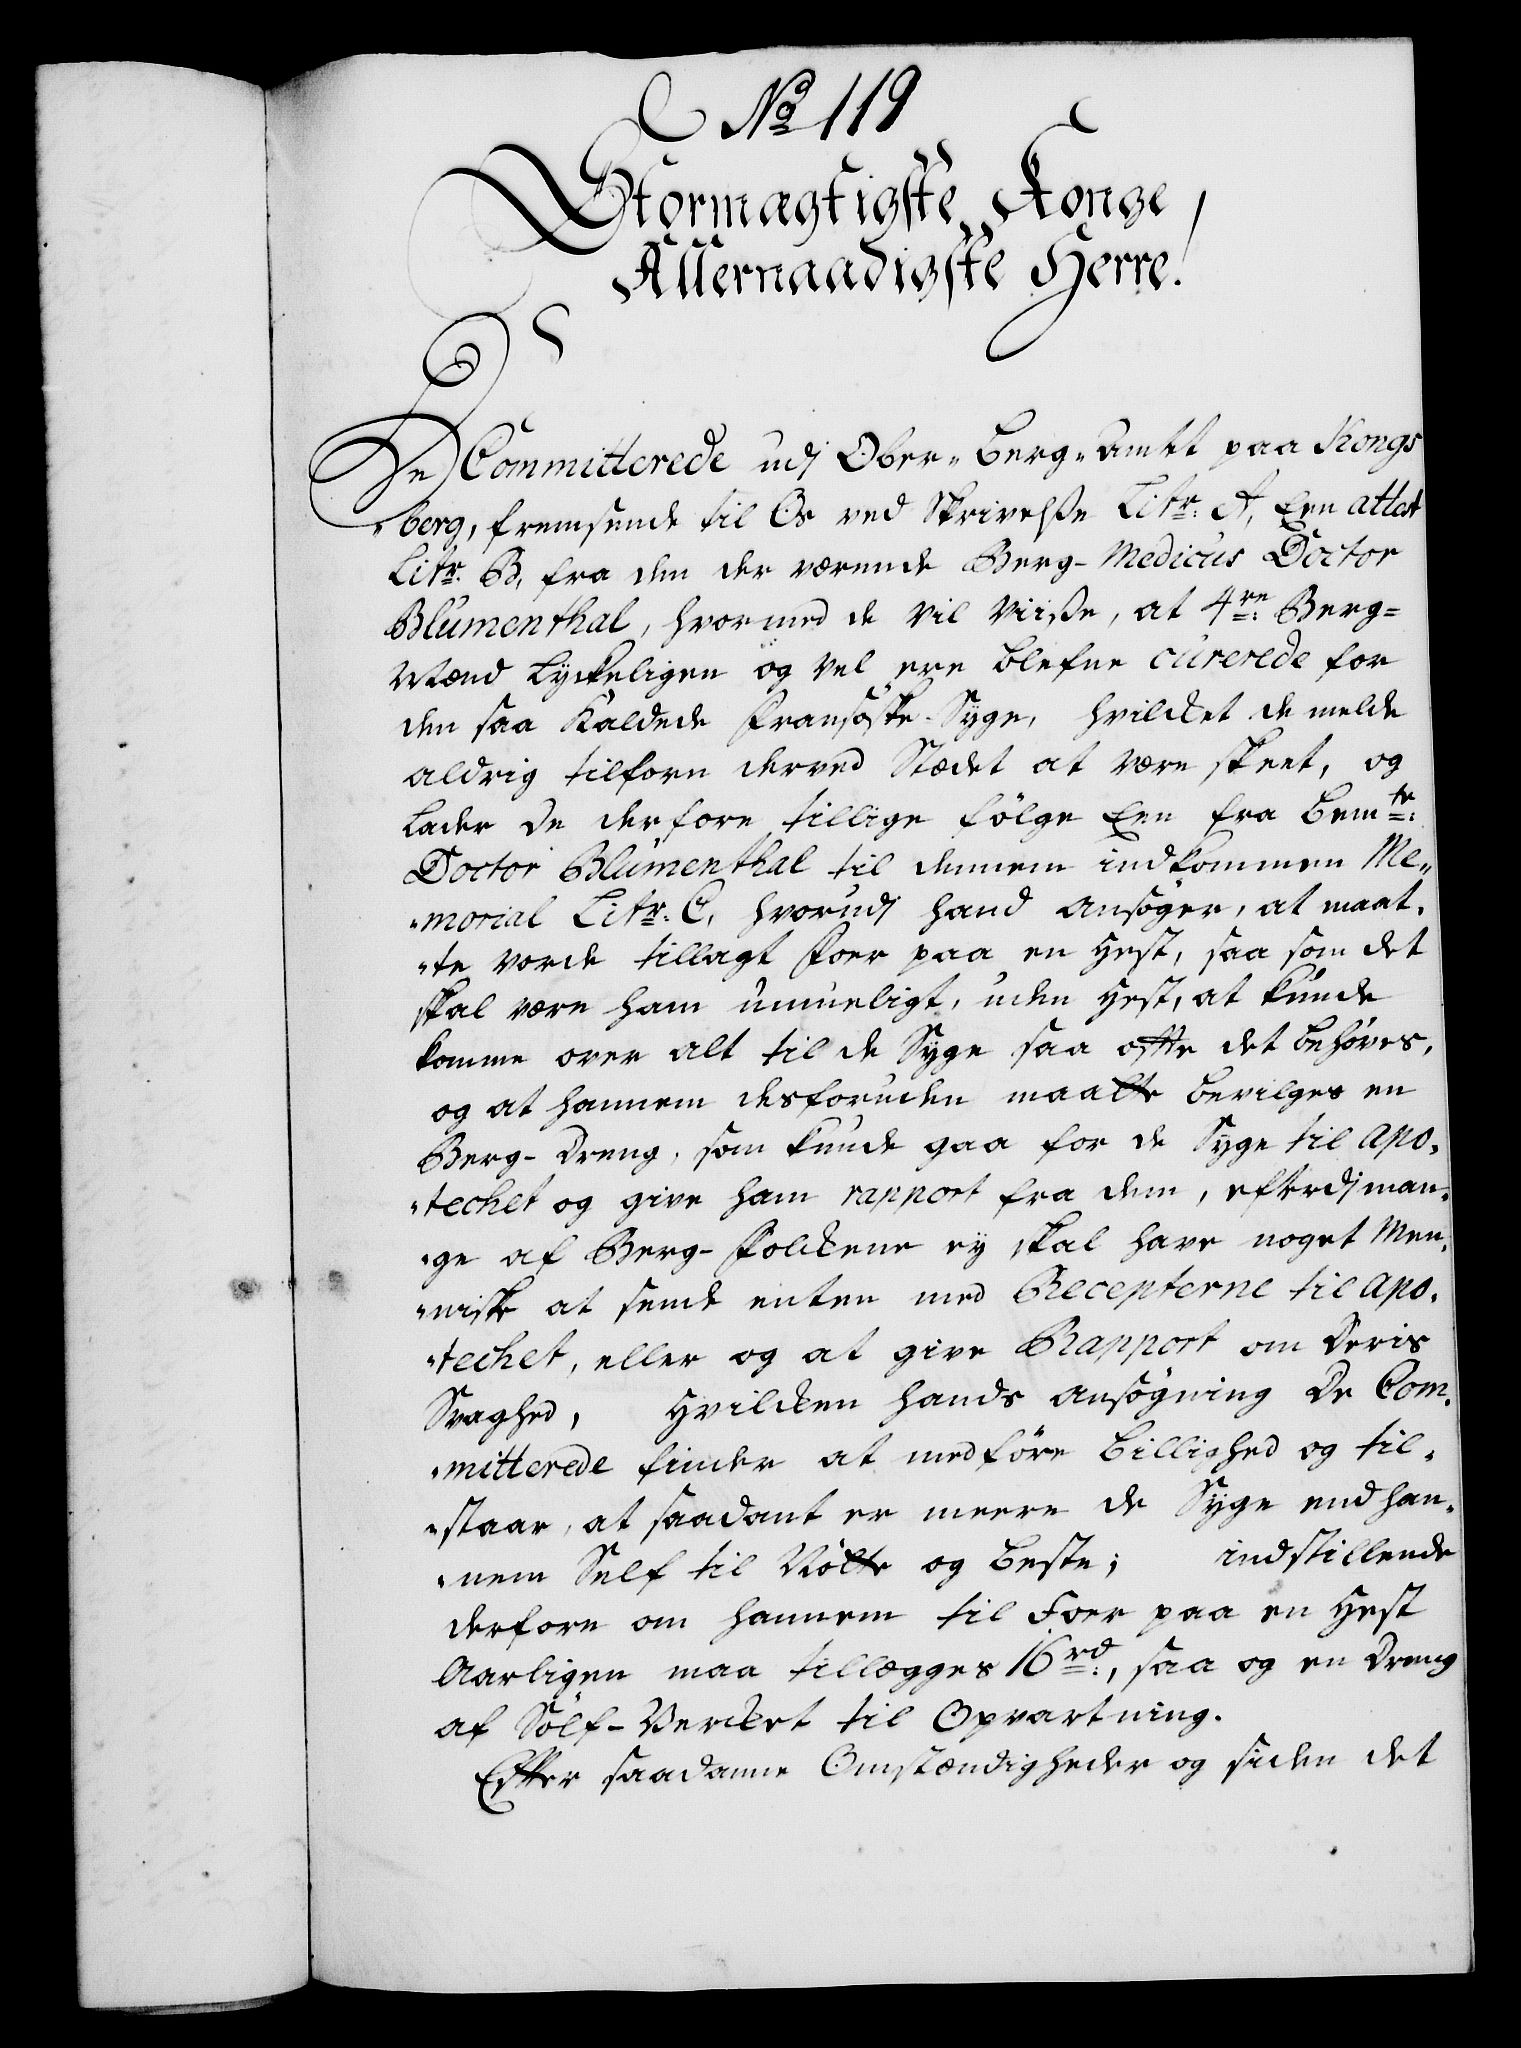 No 119
Stormægtigste Konge
Allernaadigste Herre!
De Committerede udj Ober-Berg-Amtet paa Kongs
-berg, fremsende til Os ved Skrivelsse Litr: A, Een attest
Litr. B, fra den der værende Berg-Medicus Doctor
Blumenthal, hvormed de vil viisse, at 4re: Berg-
Mænd Lyckeligen og vel ere blefne curerede for
den saa kaldede Fransøske-Syge, hvilcket de melde
aldrig tilforn derved Stædet at være skeet, og
Lader De derfore tillige følge Een fra bemte:
Doctor Blumenthal til dennem indkommen Me-
-morial Litr: C, hvorudj hand ansøger, at maat-
-te vorde tillagt Foer paa en Hest, saa som det
skal være ham umueligt, uden Hest, at kunde
komme over alt til de Syge saa offte det behøves,
og at hannem desforuden maatte bevilges en
Berg-Dreng, som kunde gaa for de Syge til Apo-
-techet og give ham rapport fra dem, efterdj man-
-ge af Berg-Folckene ey skal have noget Men-
-niske at sende enten med Recepterne til Apo-
-techet, eller og at give Rapport om Deris
Svaghed, Hvilcken hands ansøgning De Com-
-mitterede finder at medføre billighed og til-
-staar, at saadant er meere de Syge end han-
-nem Self til Nötte og beste; indstillende
derfore om hannem til Foer paa en Hest
Aarligen maa tillægges 16 rd:, saa og en Dreng
af Sølf-Vercket til Opvartning.
Effter saadanne Omstændigheder og siden det